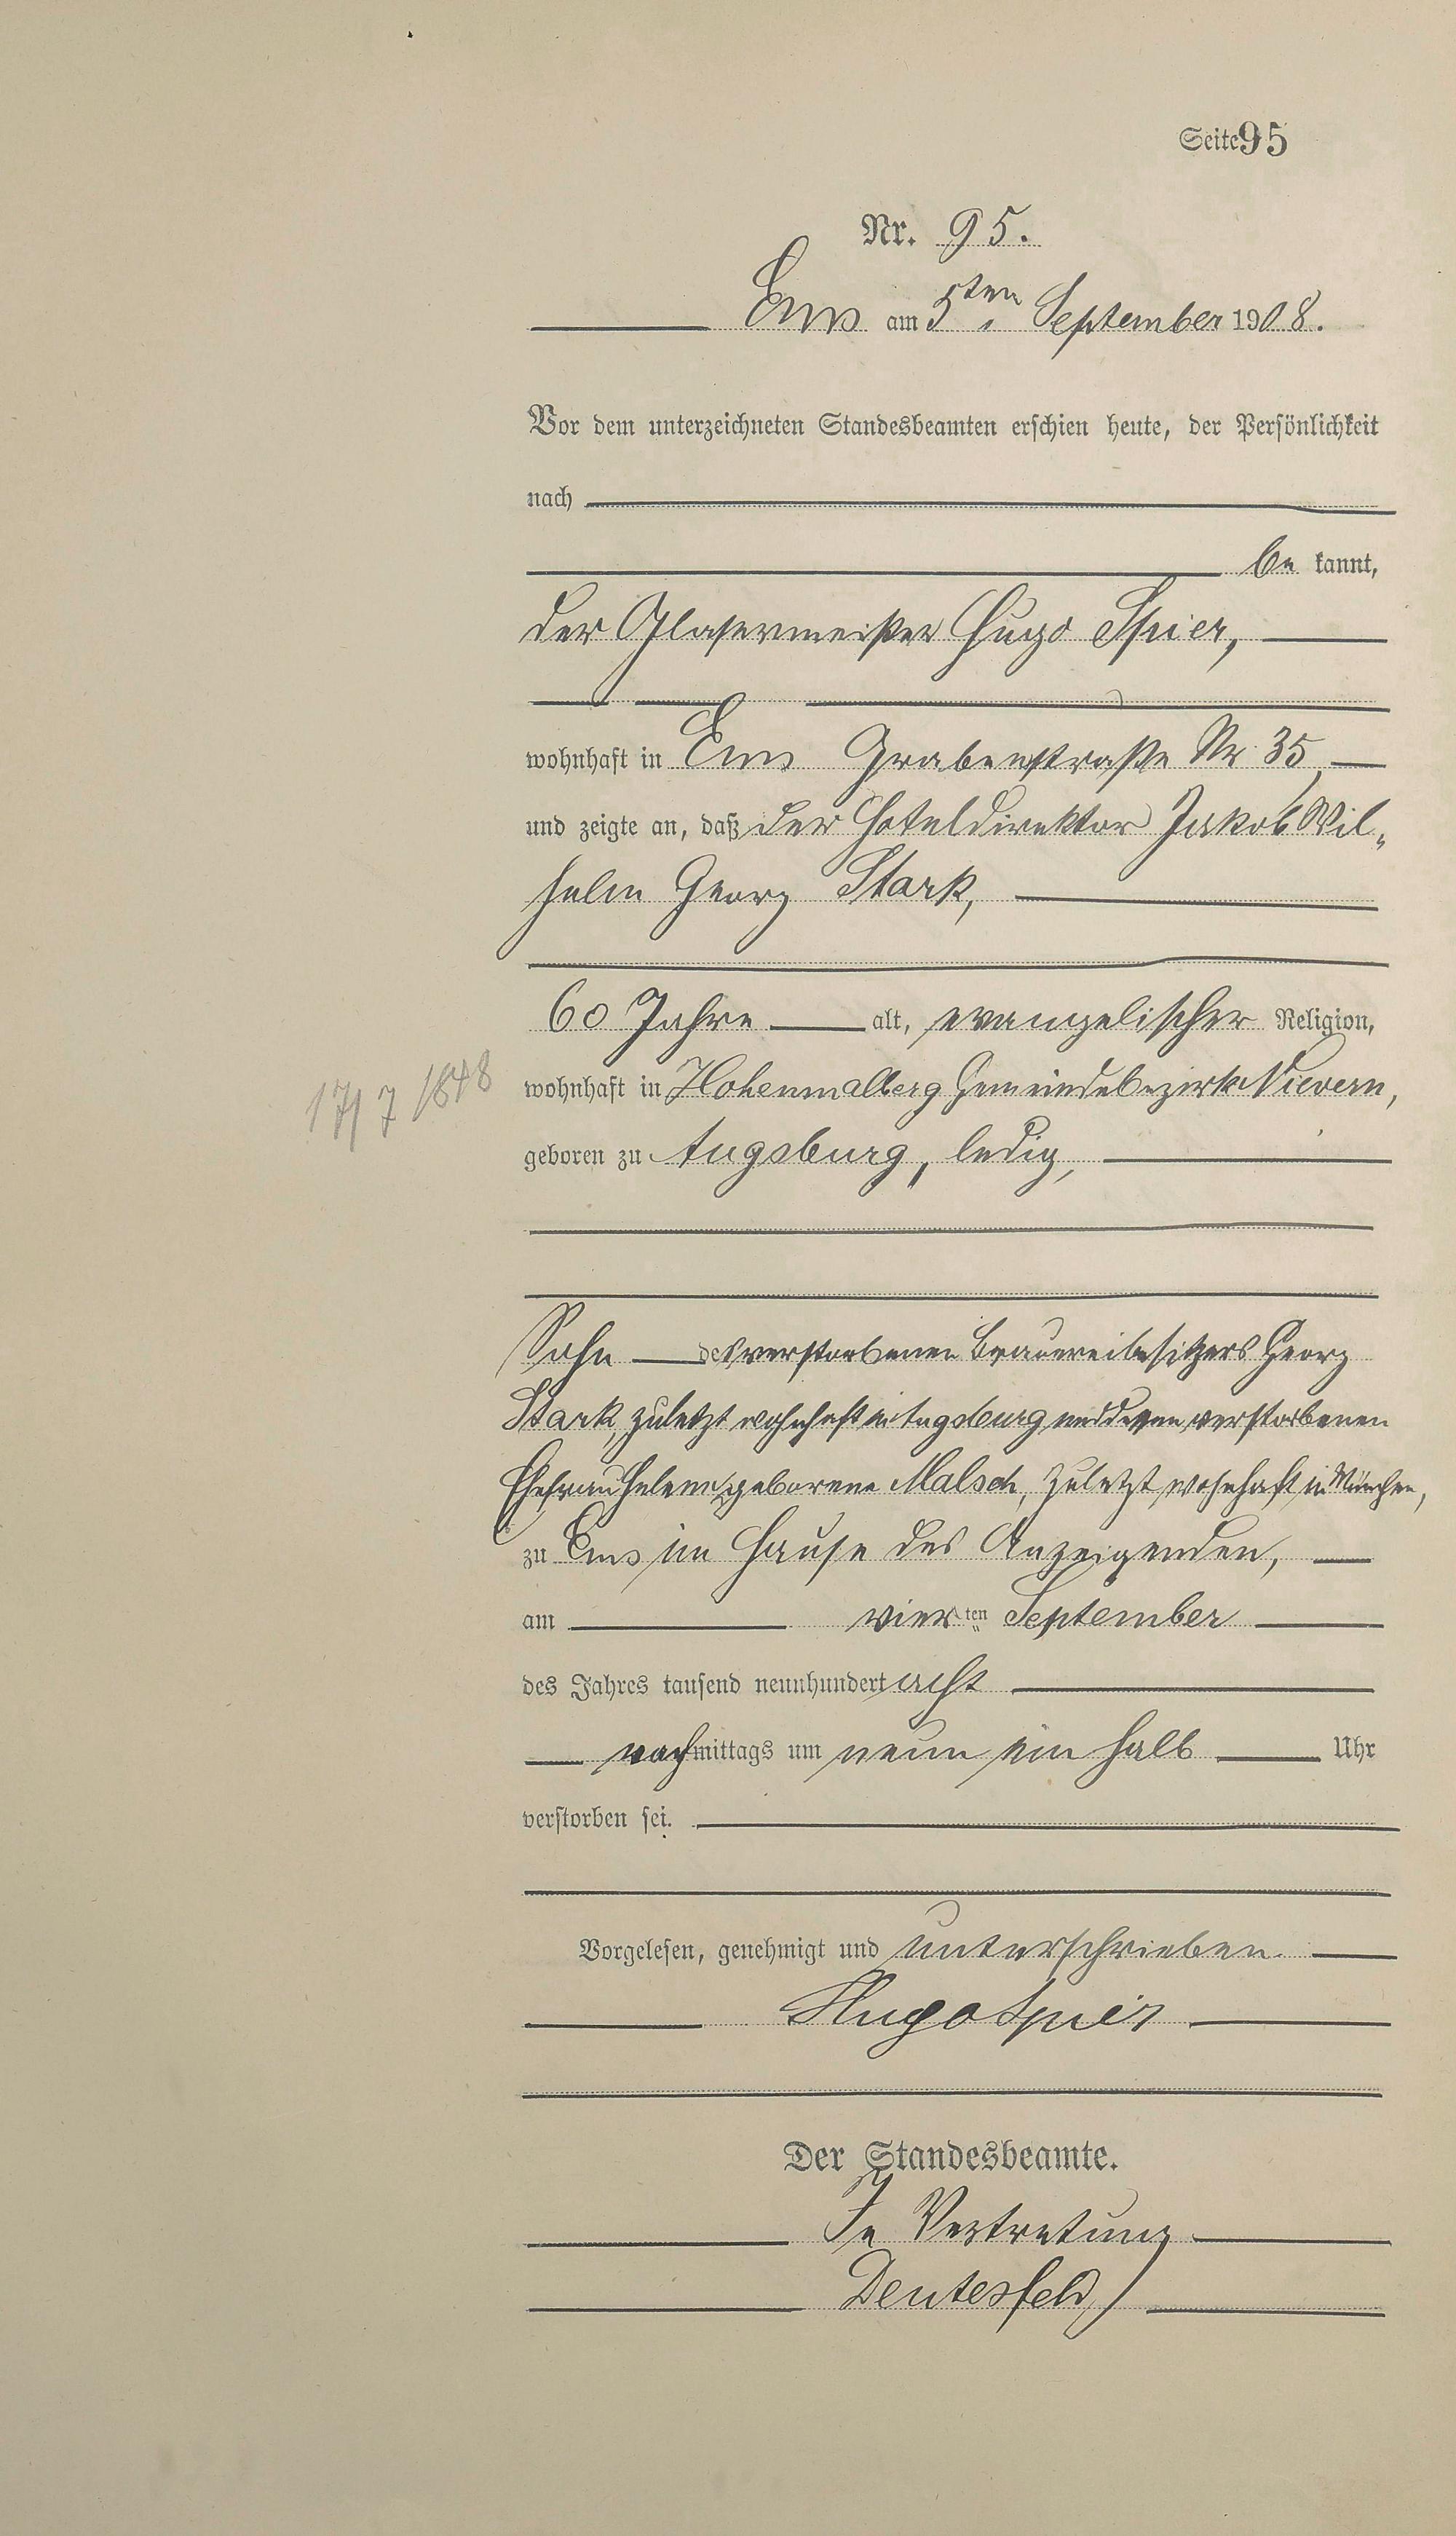 Seite 95
Nr. 95.
Ems am 5ten September 1908.
Vor dem unterzeichneten Standesbeamten erschien heute, der Persönlichkeit
nach
be kannt,
der Glasermeister Hugo Spier,
wohnhaft in Ems Grabenstraße Nr. 35,
und zeigte an, daß der Hoteldirektor Jakob Wil-
helm Georg Stark,
60 Jahre alt, evangelischer Religion,
17/7 1848
wohnhaft in Hohenmalberg Gemeindebezirk Nievern,
geboren zu Augsburg, ledig,
Sohn des verstorbenen Brauereibesitzers Georg
Stark, zuletzt wohnhaft in Augsburg und dessen verstorbenen
Ehefrau Helene geborene Malsch, zuletzt wohnhaft in München,
zu Ems im Hause des Anzeigenden,
am vierten September
des Jahres tausend neunhundert acht
nachmittags um neun ein halb Uhr
verstorben sei.
Vorgelesen, genehmigt und unterschrieben.
Hugo Spier
Der Standesbeamte.
In Vertretung
Deutesfeld